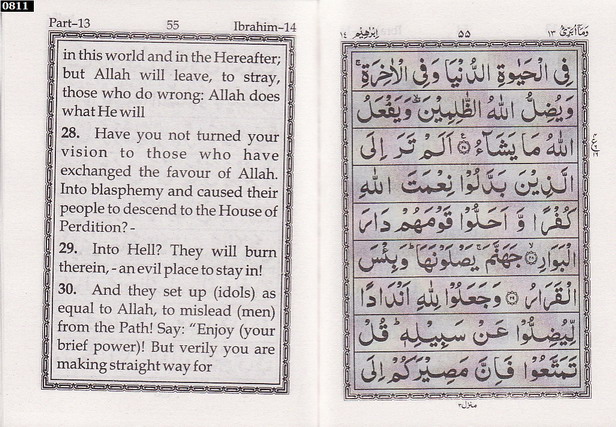 0811
Part-13 55 Ibrahim-14
in this world and in the Hereafter;
but Allah will leave, to stray,
those who do wrong: Allah does
what He will
28. Have you not turned your
vision to those who have
exchanged the favour of Allah.
Into blasphemy and caused their
people to descend to the House of
Perdition? -
29. Into Hell? They will burn
therein, - an evil place to stay in!
30. And they set up (idols) as
equal to Allah, to mislead (men)
from the Path! Say: “Enjoy (your
brief power)! But verily you are
making straight way for
وَمَآ اُبَرِّئُ ١٣ ٥٥ اِبْرٰهِيْم ١٤
فِى الْحَيٰوةِ الدُّنْيَا وَفِى الْاٰخِرَةِ ۚ
وَيُضِلُّ اللّٰهُ الظّٰلِمِيْنَ ۙ وَيَفْعَلُ
اللّٰهُ مَا يَشَآءُ ﴿٢٧﴾ اَلَمْ تَرَ اِلَى
الَّذِيْنَ بَدَّلُوْا نِعْمَتَ اللّٰهِ
كُفْرًا وَّ اَحَلُّوْا قَوْمَهُمْ دَارَ
الْبَوَارِ ﴿٢٨﴾ جَهَنَّمَ ۚ يَصْلَوْنَهَا ؕ وَبِئْسَ
الْقَرَارُ ﴿٢٩﴾ وَجَعَلُوْا لِلّٰهِ اَنْدَادًا
لِّيُضِلُّوْا عَنْ سَبِيْلِهٖ ؕ قُلْ
تَمَتَّعُوْا فَاِنَّ مَصِيْرَكُمْ اِلَى
منزل ٣